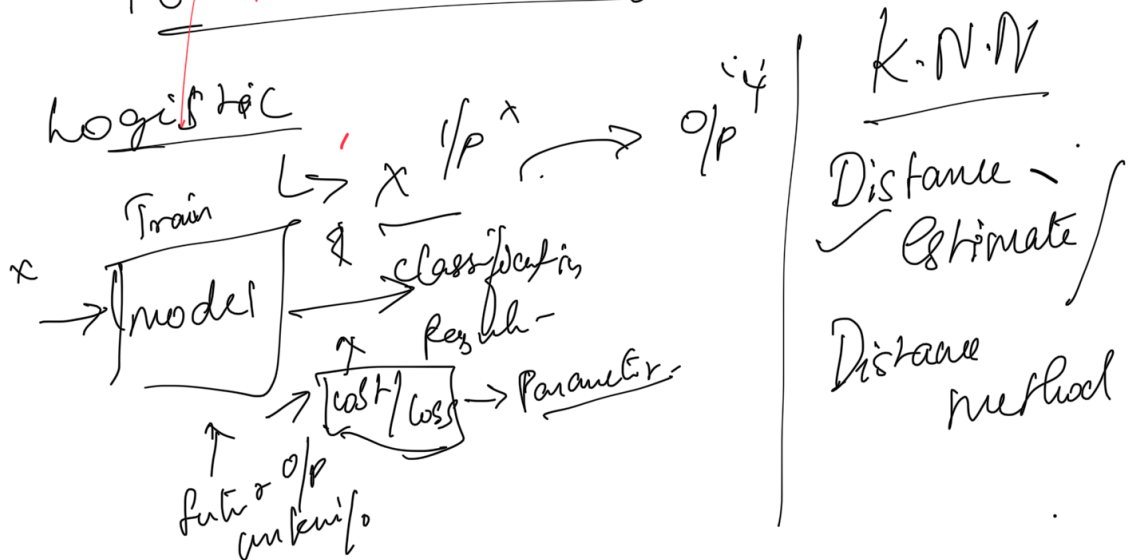 Logistic
I/p x
O/p "y"
X
Train
x
model
classification
Result -
cost/Loss
Parameter -
O/p
K.N.N
Distance -
estimate
Distance
method